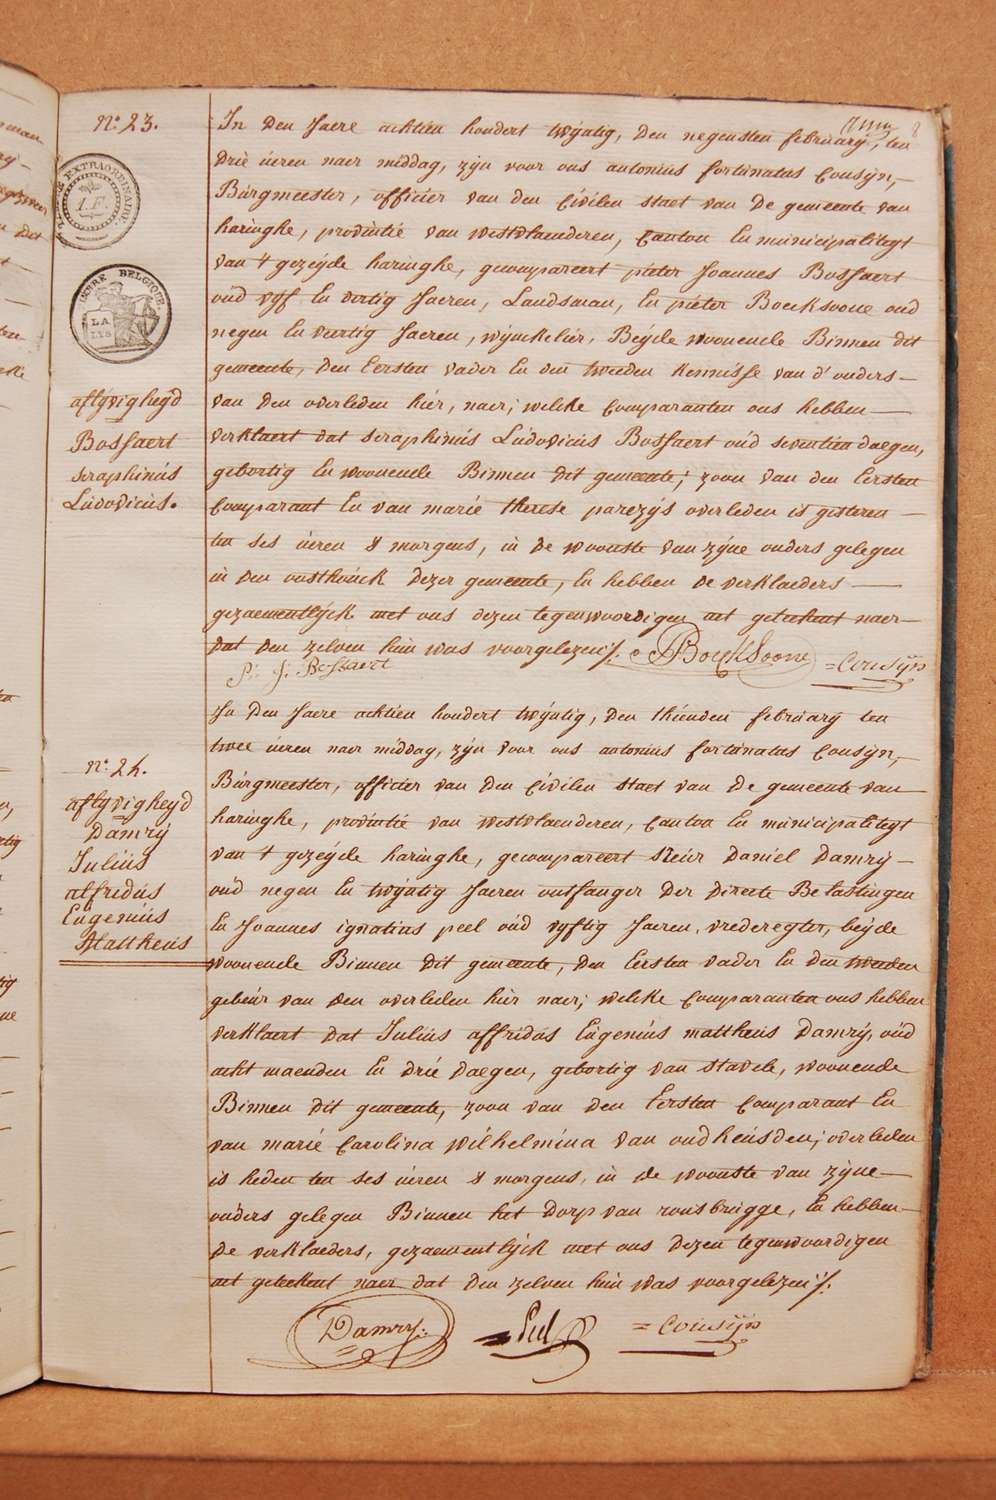 8
n.º 23.
TIMBRE EXTRAORDINAIRE.
1. F.
TIMBRE BELGIQUE
LA LYS
aflyvigheyd
Bossaert
seraphinús
Ludovicús.
In den Jaere achtien hondert twyntig, den negensten februarÿ, ten
drie úeren naer middag, zyn voor ons antonius fortunatus Cousyn,
Búrgmeester, officier van den Civilen staet van de gemeente van
haringhe, provintie van westvlaenderen, Canton En municipaliteyt
van 't gezeyde haringhe, gecompareert pieter Joannes Bossaert
oúd vyf En vertig Jaeren, Landsman, En pieter Boecksoone oud
negen En veertig Jaeren, wynckelier, Beyde woonende Binnen dit
gemeente, den Eersten vader En den tweeden Kennisse van d'ouders
van den overleden hier, naer; welcke Comparanten ons hebben
verklaert dat seraphinús Lúdovicús Bossaert oúd seventien daegen,
gebortig En woonende Binnen dit gemeente; zoon van den Eersten
Comparant En van marie therese parezys overleden is gisteren
ten ses úeren s' morgens, in de woonste van zyne ouders gelegen
in den oosthoúck dezer gemeente, En hebben de verklaeders
gezaementlyck met ons dezen tegenwoordigen act geteekent naer
dat den zelven hun was voorgelezen ./.
P: J: Bossaert
P Boecksoone
= Cousijn
n.º 24.
aflyvigheyd
Damrÿ
Juliús
alfridús
Eugeniús
Mattheus
In den Jaere achtien hondert twyntig, den thienden februarÿ ten
twee úeren naer middag, zyn voor ons antonius fortunatus Cousyn,
Búrgmeester, officier van den Civilen staet van de gemeente van
haringhe, provintie van westvlaenderen, Canton En municipaliteyt
van 't gezeyde haringhe, gecompareert sieur Daniel Damrÿ
oúd negen En twyntig Jaeren ontfanger der directe Belastingen
En Joannes ignatius peel oúd vyftig Jaeren, vrederegter, beyde
woonende Binnen dit gemeente, den Eersten vader En den tweeden
gebúer van den overleden hier naer; welcke Comparanten ons hebben
verklaert dat Juliús affridús Eúgeniús mattheus Damrÿ, oúd
acht maenden En drie daegen, gebortig van stavele, woonende
Binnen dit gemeente, zoon van den Eersten Comparant En
van marie Carolina wilhelmina van oudheusden; overleden
is heden ten ses úeren s' morgens, in de woonste van zyne
ouders gelegen Binnen het dorp van rousbrúgge, En hebben
de verklaeders, gezaementlyck met ons dezen tegenwoordigen
act geteekent naer dat den zelven hun was voorgelezen ./.
Damrÿ.
Peel
= Cousijn